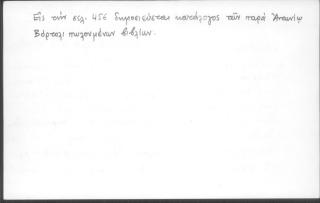 Εἰς τὴν σελ. 456 δημοσιεύεται κατάλογος τῶν παρὰ Ἀντωνίῳ
Βόρτολι πωλουμένων βιβλίων.